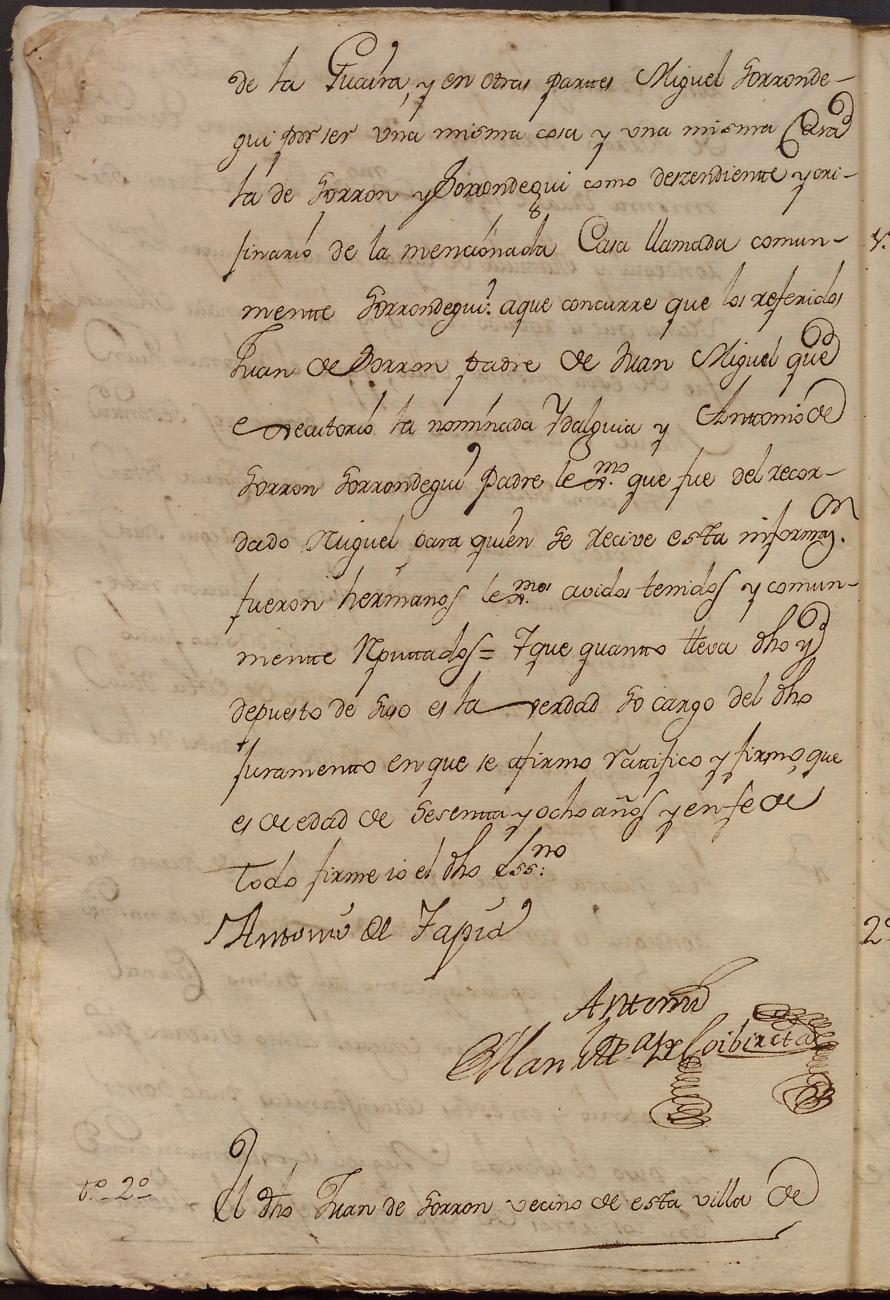 de la Guaira, y en otras parttes Miguel Gorronde-
gui por ser una misma cosa y una misma Casa
la de Gorron y Gorrondegui como deszendientte y ori-
jinario de la mencionada Casa llamada comun-
mentte Gorrondegui: aque concurre que los referidos
Juan de Gorron padre de Juan Miguel que
executorio la nominada Ydalguia y Anttonio de
Gorron Gorrondegui padre lexmo. que fue del recor-
dado Miguel para quien se recive esta informaz.on
fueron hermanos lexmos. avidos tenidos y comun-
mentte Reputtados = Y que quantto lleva dho y
depuesto de suso es la verdad so cargo del dho
juramentto en que se afirmo rattifico y firmo, que
es de edad de sesentta y ocho años y en fe de
todo firme io el dho Essno:
Antonio de Tapia
Antemi
Man
tt.o 2o
El dho Juan de Gorron vecino de esta villa de
tt.
2o